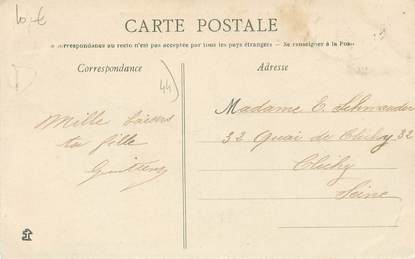 10 €
CARTE POSTALE
correspondance au recto n'est pas acceptée par tous les pays étrangers - Se renseigner à la Poste
Correspondance
Adresse
44)
Mille baisers
ta fille
Madame E. Schneider
32 Quai de Clichy 32
Clichy
Seine